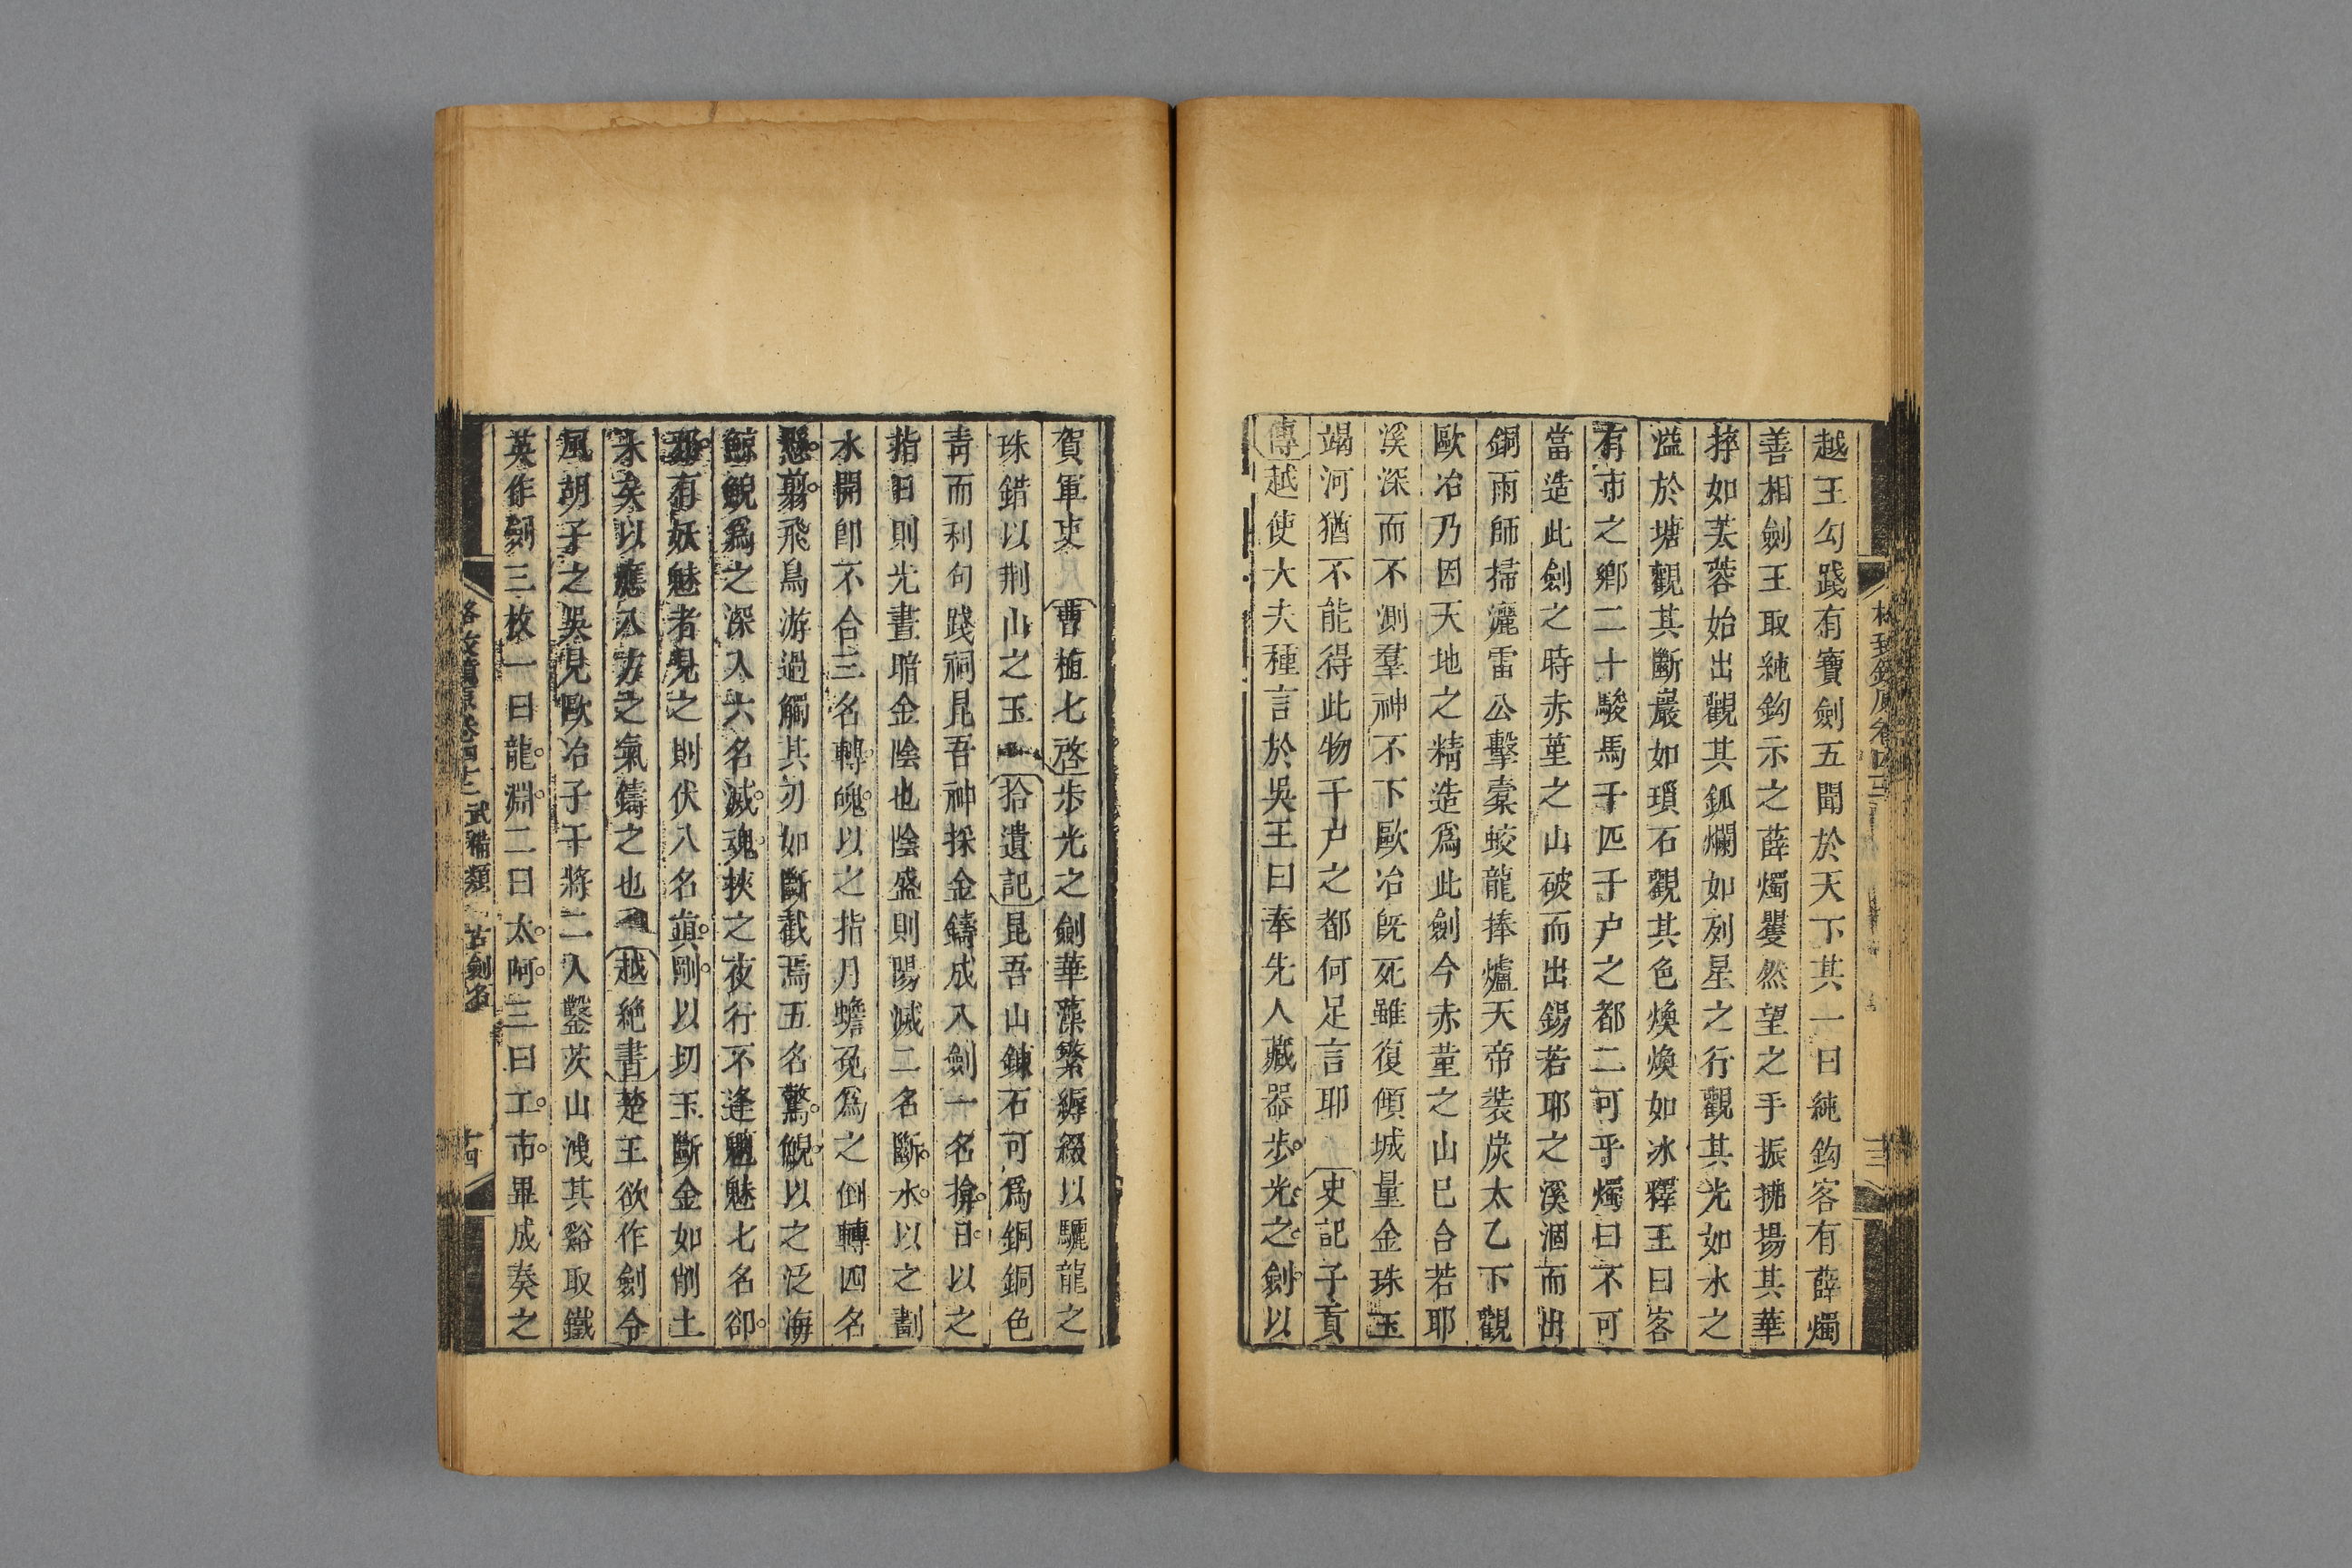 越王勾踐有寶劍五聞於天下其一曰純鈎客有薛燭
善相劍王取純鈎示之薛燭矍然望之手振拂揚其華
捽如芙蓉始出觀其釽爛如列星之行觀其光如水之
溢於塘觀其斷巖如瑣石觀其色煥煥如冰釋王曰客
有市之鄉二十駿馬千匹千戶之都二可乎燭曰不可
當造此劍之時赤堇之山破而出錫若耶之溪涸而出
銅雨師掃灑雷公擊橐蛟龍捧爐天帝裝炭太乙下觀
歐冶乃因天地之精造爲此劍今赤堇之山已合若耶
溪深而不測羣神不下歐冶旣死雖復傾城量金珠玉
竭河猶不能得此物千戶之都何足言耶 史記子貢
傳越使大夫種言於吳王曰奉先人藏器步光之劍以
賀軍吏 曹植七啓步光之劍華藻繁縟綴以驪龍之
珠錯以荆山之玉 拾遺記昆吾山鍊石可爲銅銅色
青而利句踐祠昆吾神採金鑄成八劍一名揜日以之
指日則光晝暗金陰也陰盛則陽滅二名斷水以之劃
水開卽不合三名轉魄以之指月蟾兔爲之倒轉四名
懸翦飛鳥游過觸其刃如斷截焉五名驚鯢以之泛海
鯨鯢爲之深入六名滅魂挾之夜行不逢魑魅七名卻
邪有妖魅者見之則伏八名眞剛以切玉斷金如削土
木矣以應八方之氣鑄之也 越絶書楚王欲作劍令
風胡子之吳見歐冶子干將二人鑿茨山洩其谿取鐵
英作劍三枚一曰龍淵二曰太阿三曰工市畢成奏之
卷四十二 武備類 古劍名
十四